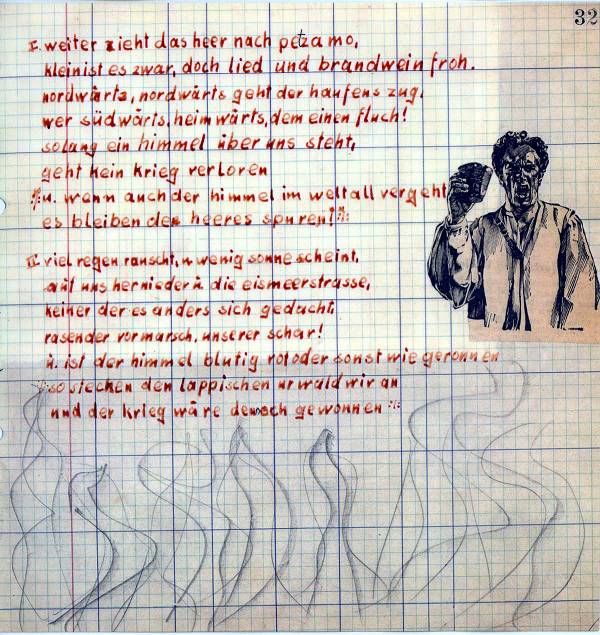 32
I. weiter zieht das heer nach petzamo,
klein ist es zwar, doch lied und brandwein froh.
nordwärts, nordwärts geht der haufens zug.
wer südwärts, heimwärts, dem einen fluch!
solang ein himmel über uns steht,
geht kein krieg verloren
:u. wenn auch der himmel im weltall vergeht
es bleiben des heeres spuren!:
II. viel regen rauscht, u. wenig sonne scheint,
auf uns hernieder u. die eismeerstrasse,
keiner der es anders sich gedacht,
rasender vormarsch, unserer schar!
u. ist der himmel blutig rot oder sonst wie geronnen
:so stecken den lappischen urwald wir an
und der krieg wäre dennoch gewonnen: